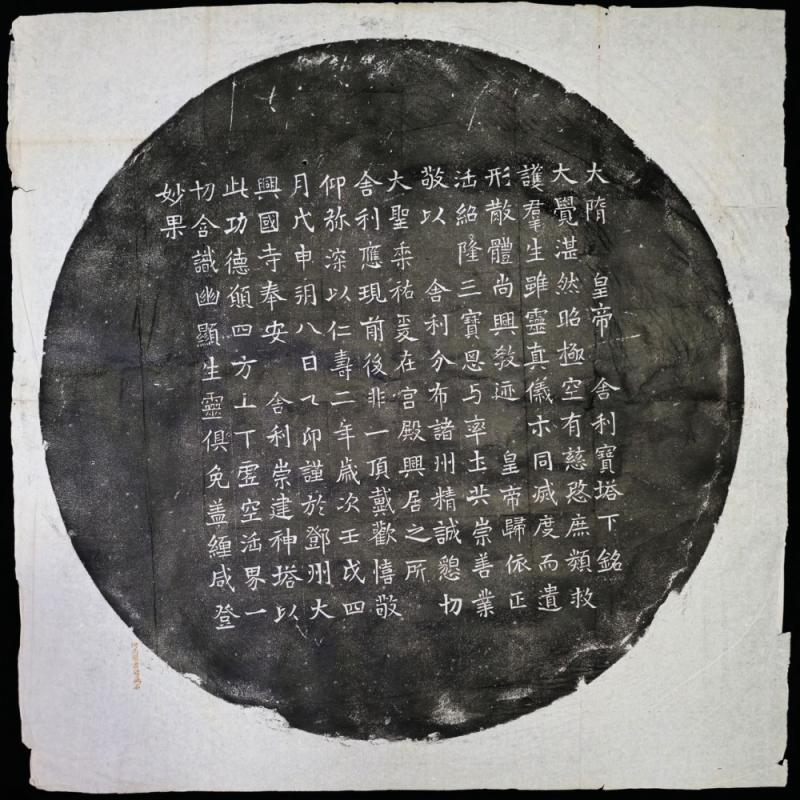 大隋 皇帝 舍利寶塔下銘
大覺湛然昭極空有慈愍庶類救
護羣生雖靈真儀示同滅度而遺
形散體尚興教迹 皇帝歸依正
法紹隆三寶思与率土共崇善業
敬以 舍利分布諸州精誠懇切
大聖垂祐爰在宫殿興居之所
舍利應現前後非一頂戴歡憘敬
仰弥深以仁壽二年歲次壬戌四
月戊申朔八日乙卯謹於鄧州大
興國寺奉安 舍利崇建神塔以
此功德願四方上下虛空法界一
切含識幽顯生靈俱免蓋纏咸登
妙果